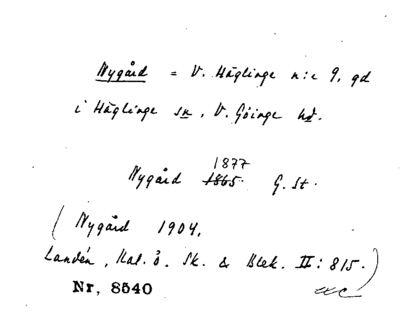 Nygård = V. Häglinge n:c 9, gd
i Häglinge sn, V. Göinge hd.
1877
Nygård 1865 G. St.
(Nygård 1904,
Landén, Kal. ö. Sk. & Blek. II: 815.)
Nr, 8540